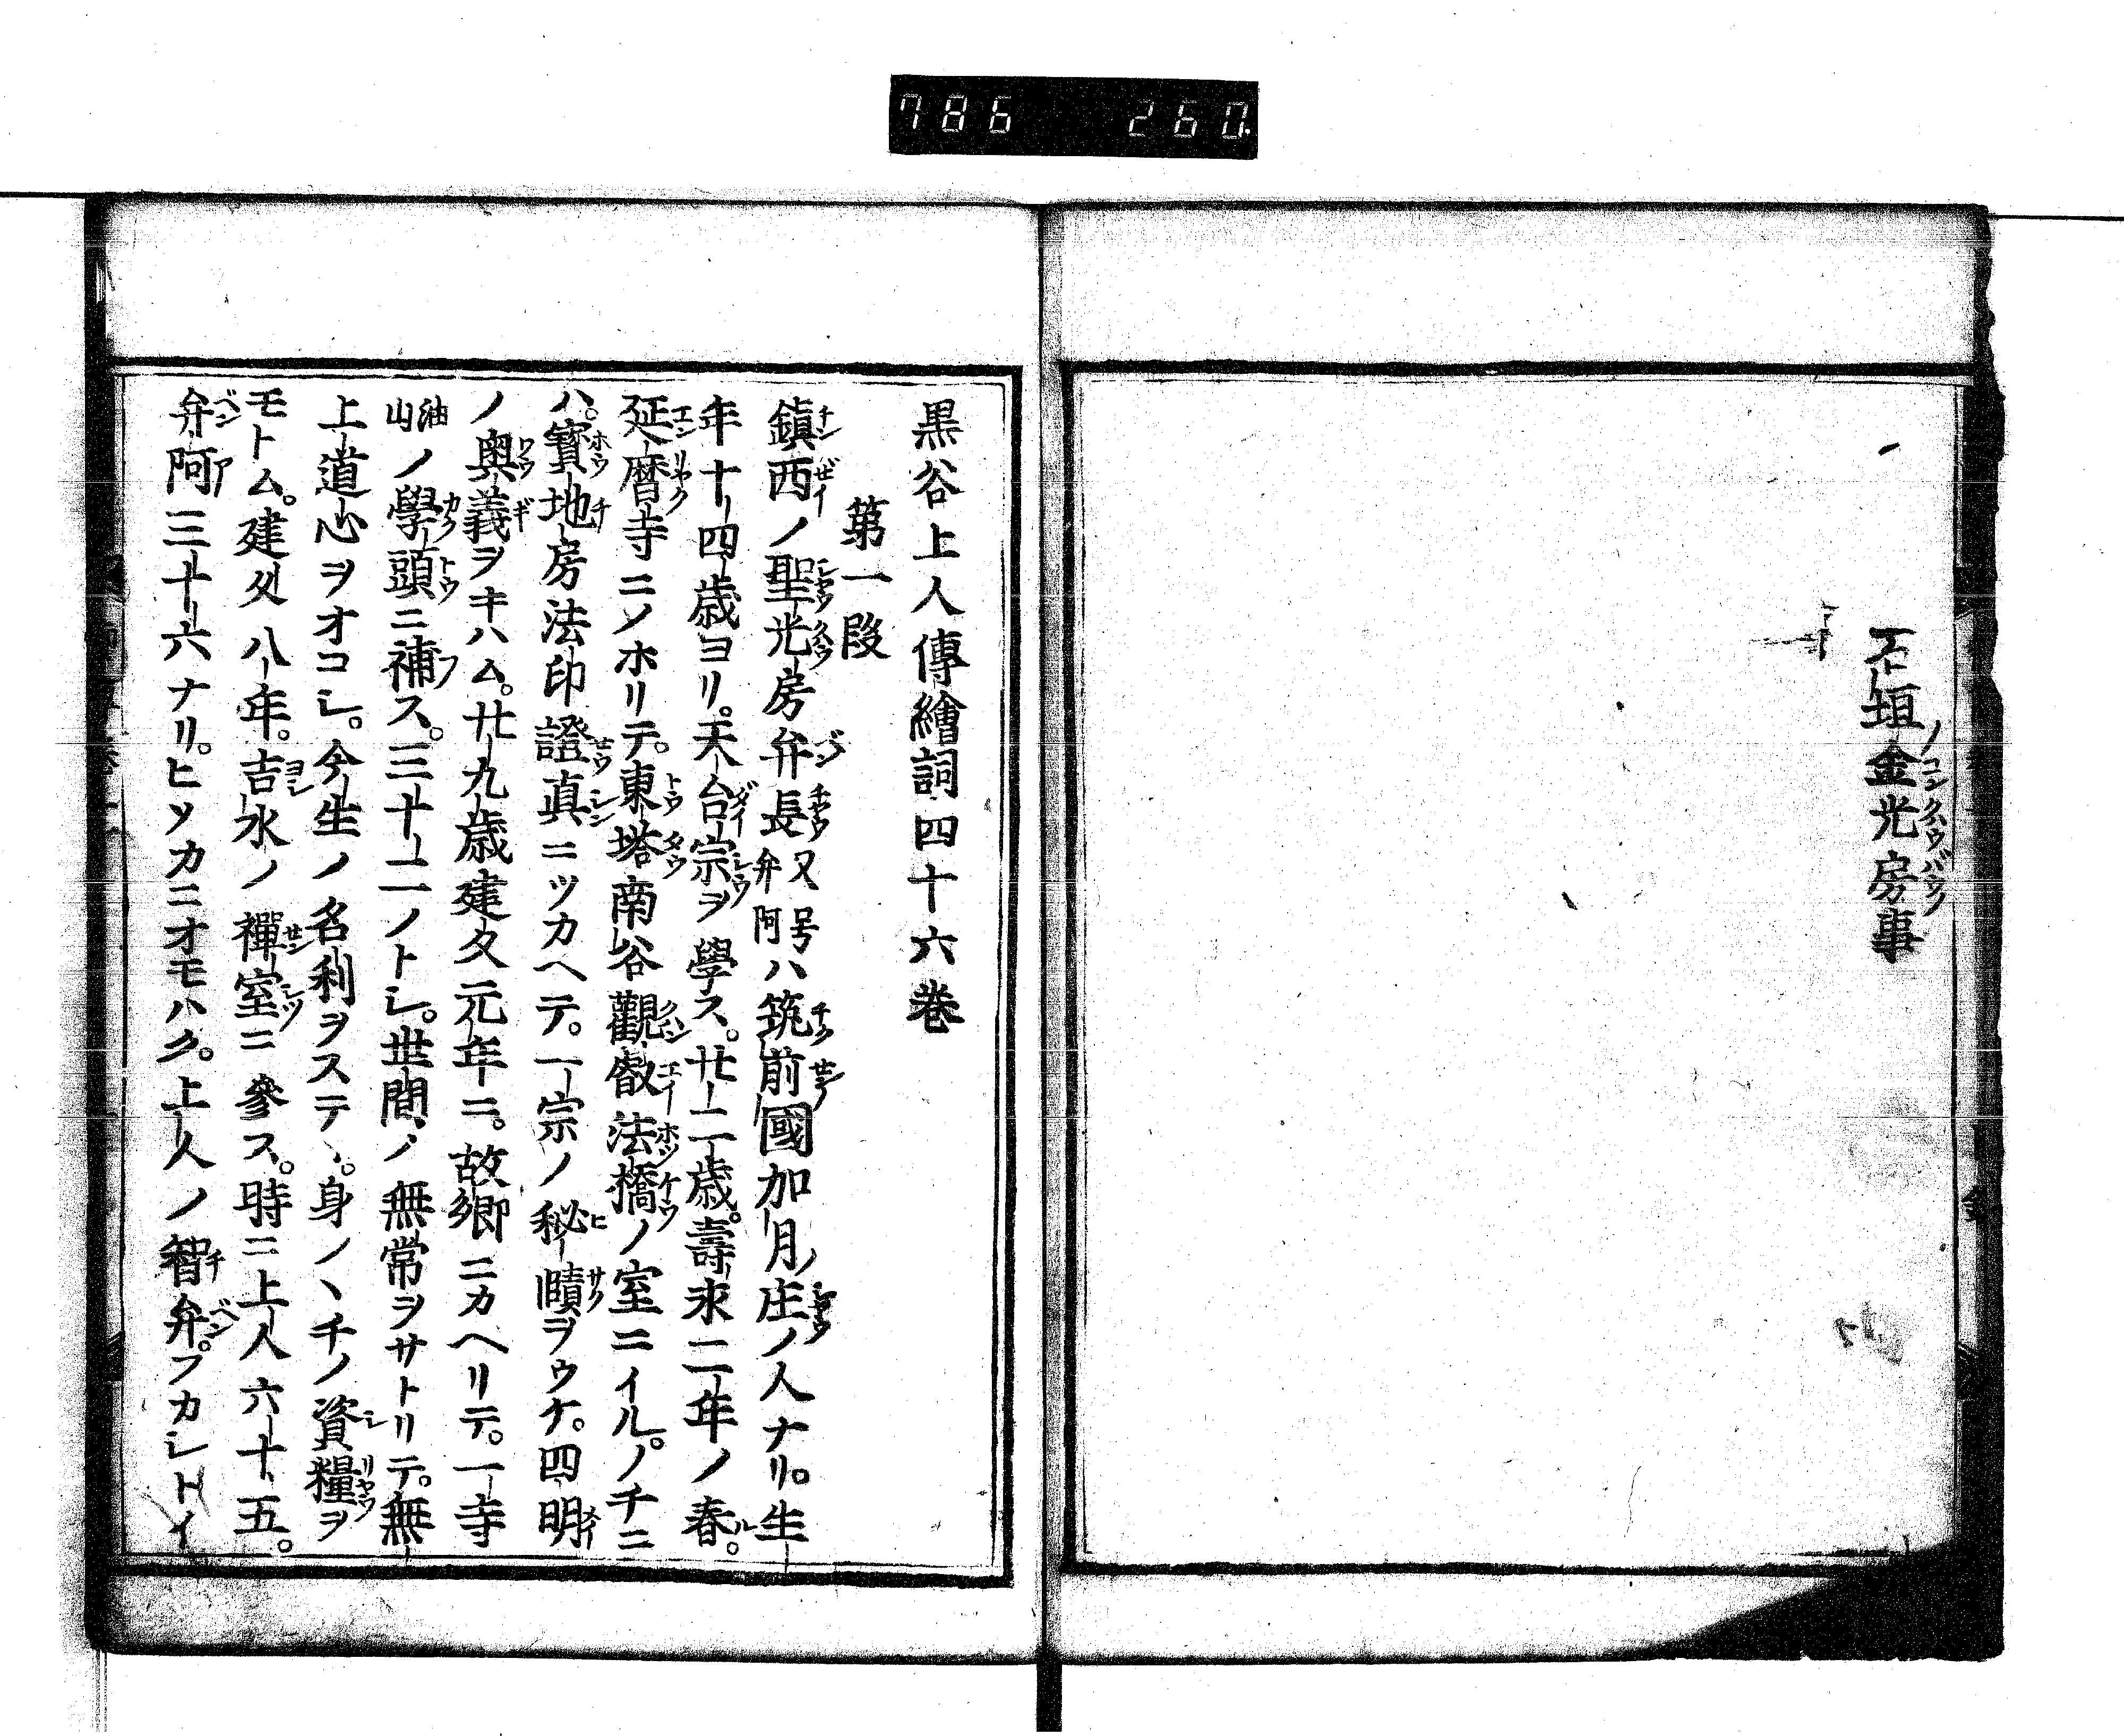 786 260
石垣金光房事
黒谷上人傳繪詞四十六巻
第一段
鎮西ノ聖光房弁長又号弁阿ハ筑前國加月ノ庄ノ人ナリ。生
年十四歳ヨリ。天台宗ヲ學ス。廿二歳。壽永二年ノ春。
延暦寺ニノホリテ。東塔南谷觀叡法橋ノ室ニイル。ノチニ
ハ。寳地房法印證真ニツカヘテ。一宗ノ秘賾ヲウケ。四明
ノ奥義ヲキハム。廿九歳建久元年ニ。故郷ニカヘリテ。一寺
油山ノ學頭ニ補ス。三十二ノトシ。世間ノ無常ヲサトリテ。無
上道心ヲオコシ。今生ノ名利ヲステヽ。身ノヽチノ資糧ヲ
モトム。建久八年。吉水ノ禪室ニ參ス。時ニ上人六十五。
弁阿三十六ナリ。ヒソカニオモハク。上人ノ智弁。フカシトイ